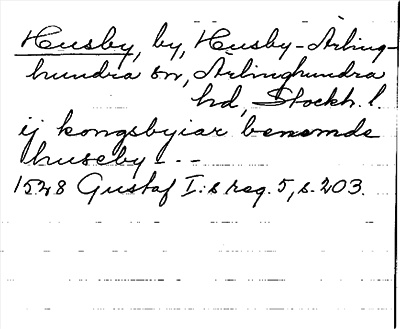 Husby, by, Husby-Ärling-
hundra sn, Ärlinghundra
hd, Stockh. l.
ij kongsbyiar benemde
huseby - - -
1528 Gustaf I:s reg. 5, s. 203.